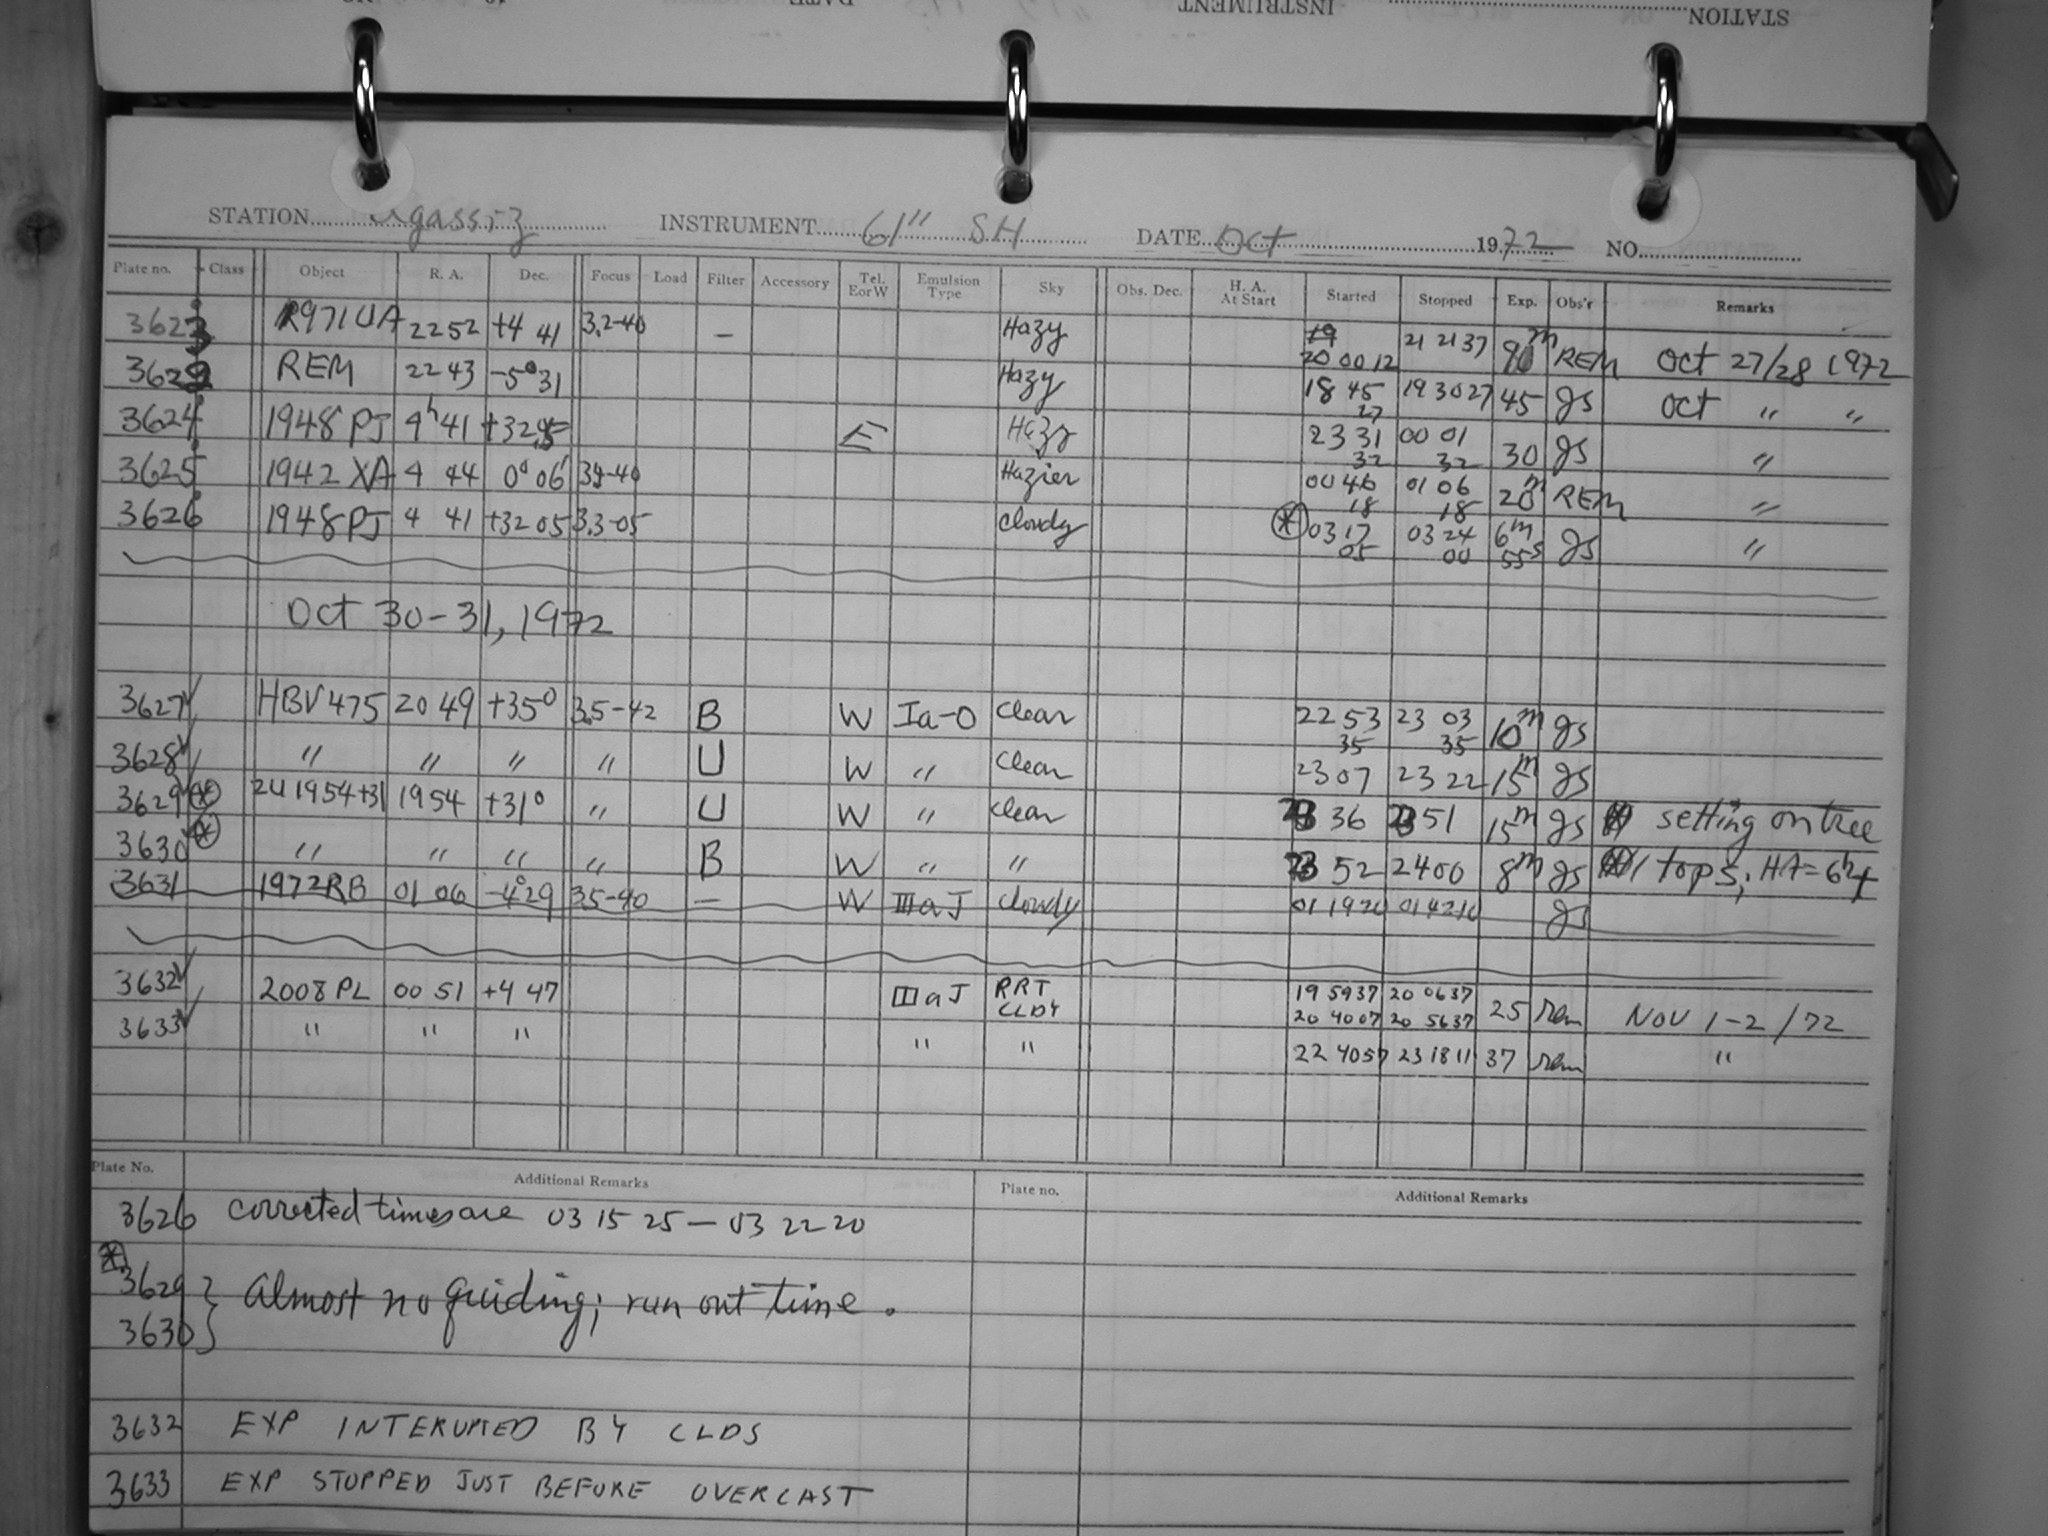 STATION
INSTRUMENT
DATE
STATION Agassiz INSTRUMENT 61" SH DATE Oct 1972 NO.
Plate no. Class Object R. A. Dec. Focus Load Filter Accessory Tel. E or W Emulsion Type Sky Obs. Dec. H. A. At Start Started Stopped Exp. Obs'r Remarks
3623 1971UA 22 52 +4 41 3.2-40 – Hazy 19 20 00 12 21 21 37 90m REM Oct 27/28 1972
3622 REM 22 43 -5° 31 Hazy 18 45 27 19 30 27 45 gs Oct " "
3624 1948 PJ 4h 41 E Hazy 23 31 32 00 01 32 30 gs "
3625 1942 XA 4 44 0° 06' Hazier 00 46 18 01 06 18 20m REM "
3626 1948PJ 4 41 +32 05 3.3-05 cloudy * 03 17 05 03 24 00 6m 55s gs "
Oct 30-31, 1972
3627 HBV 475 20 49 +35° 3.5-42 B W Ia-O clear 22 53 35 23 03 35 10m gs
3628 " " " " U W " clear 23 07 23 22 15m gs
3629 * 2U 1954+31 1954 +31° " U W " clear 23 36 23 51 15m gs * setting on tree
3630 * " " " " B W " " 23 52 24 00 8m gs tops; HA=6h+
3631 1972RB 01 06 -4° 29 3.5-40 – W IIIaJ cloudy 01 19 20 01 42 10 gs
3632 2008 PL 00 51 +4 47 IIIaJ PRT CLDY 19 5937 20 0637 20 4007 20 5637 25 rem NOV 1-2/72
3633 " " " " " 22 4057 23 18 11 37 rem "
Plate No. Additional Remarks Plate no. Additional Remarks
3626 corrected times are 03 15 25 – 03 22 20
*
3629 } Almost no guiding; run out time.
3630
3632 EXP INTERUPTED BY CLDS
3633 EXP STOPPED JUST BEFORE OVERCAST